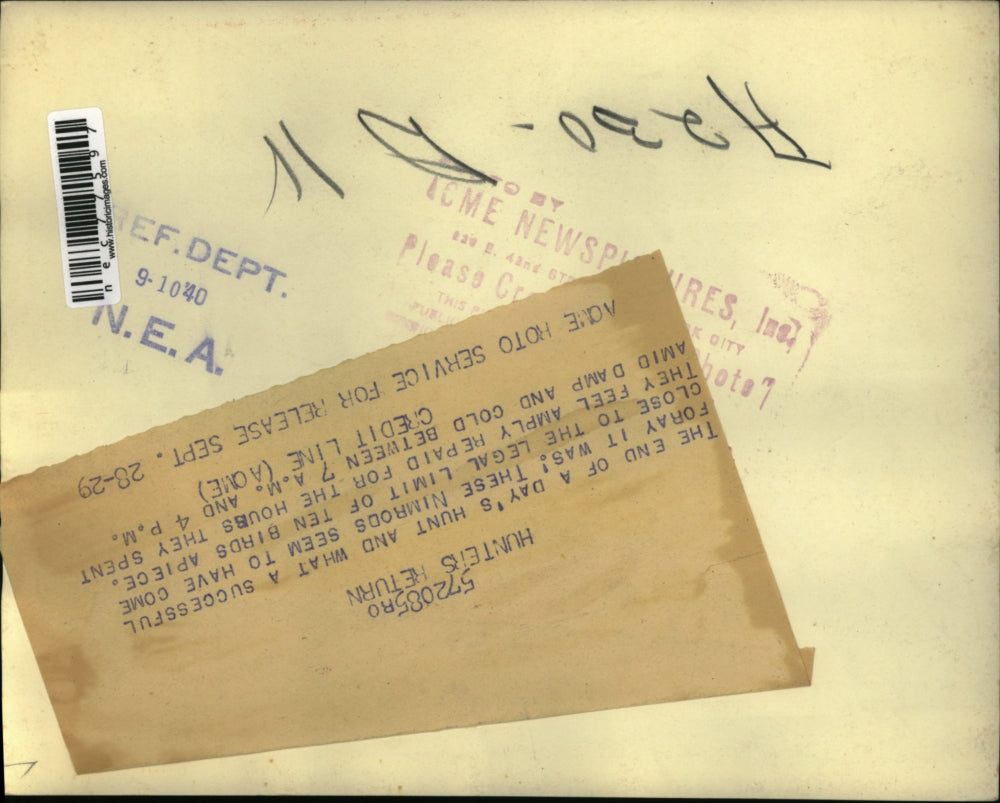 572085RO
HUNTERS RETURN
THE END OF A DAY'S HUNT AND WHAT A SUCCESSFUL
FORAY IT WAS! THESE NIMRODS SEEM TO HAVE COME
CLOSE TO THE LEGAL LIMIT OF TEN BIRDS APIECE.
THEY FEEL AMPLY REPAID FOR THE HOURS THEY SPENT
AMID DAMP AND COLD BETWEEN 7 A.M. AND 4 P.M.
CREDIT LINE (ACME)
ACME ROTO SERVICE FOR RELEASE SEPT. 28-29
REF. DEPT.
9-10 40
N.E.A.
BY
ACME NEWSPICTURES, Inc.
Please
THIS
CITY
www.historicimages.com